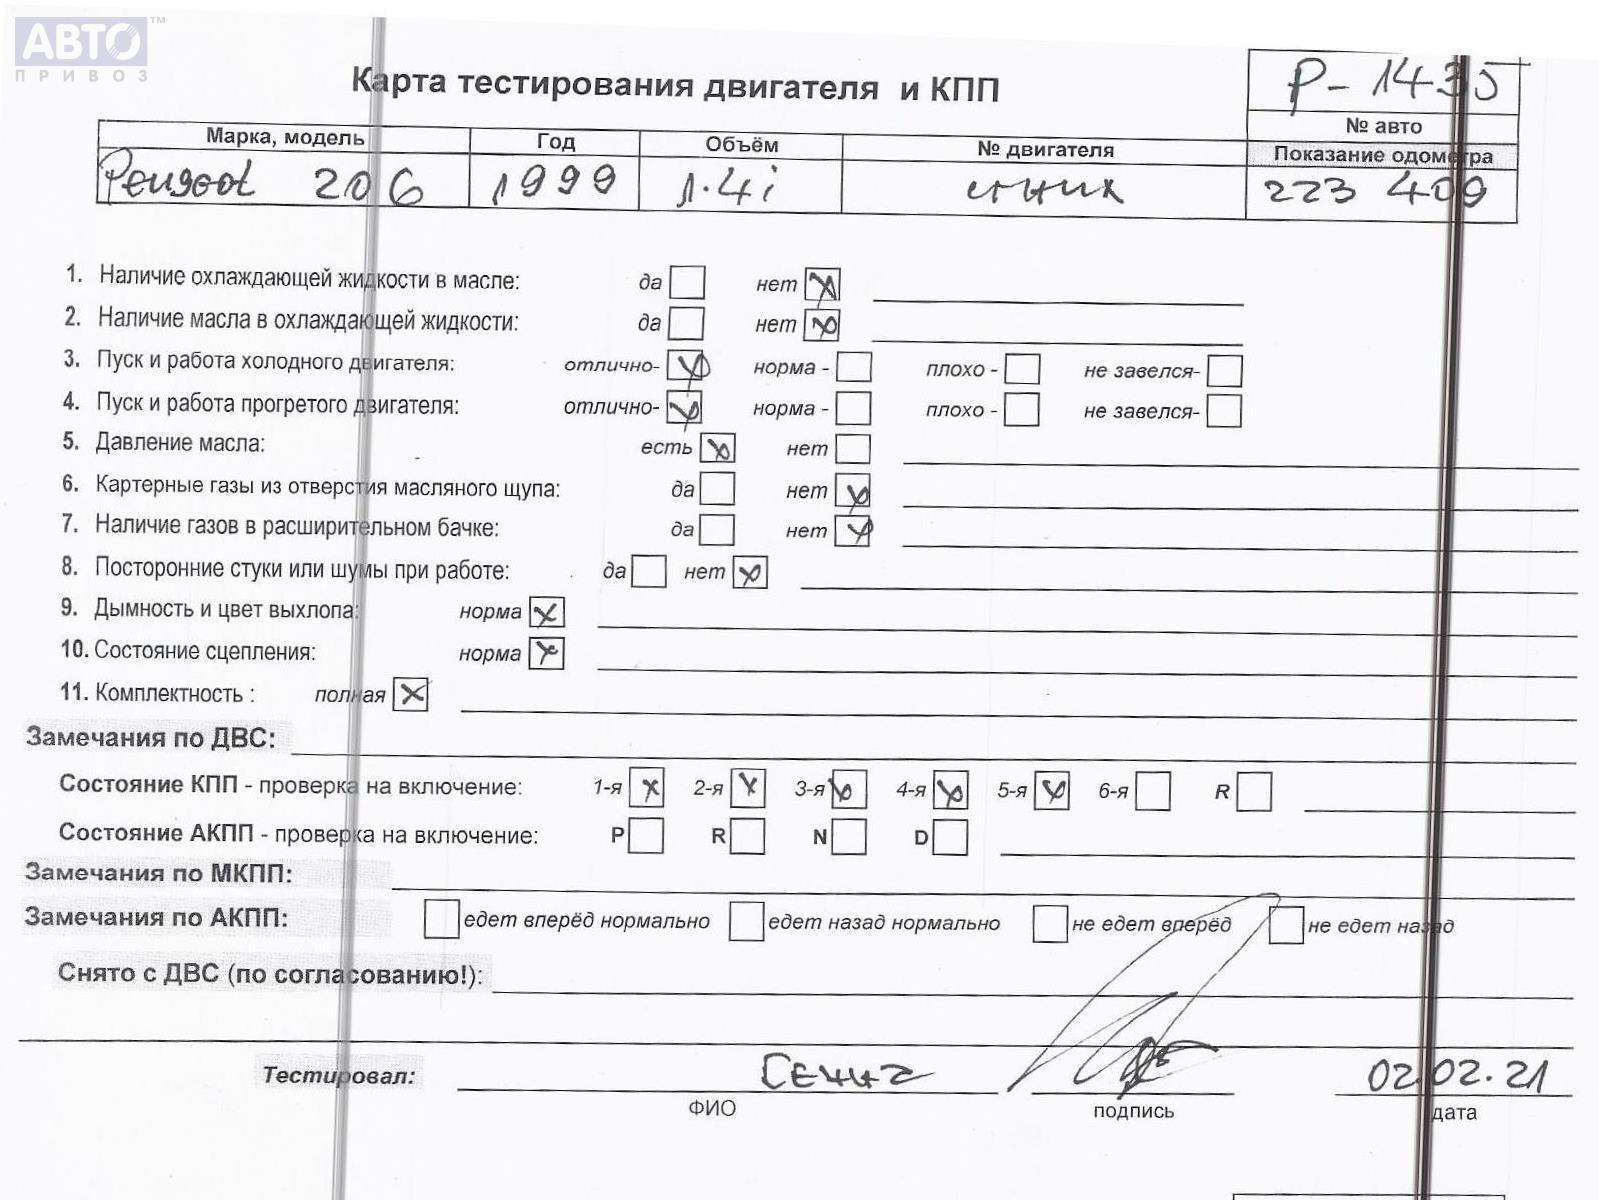 АВТО™
ПРИВОЗ
Карта тестирования двигателя и КПП
P-1435
№ авто
Марка, модель Год Объём № двигателя Показание одометра
Peugeot 206 1999 1.4i 223 409
1. Наличие охлаждающей жидкости в масле: да нет
2. Наличие масла в охлаждающей жидкости: да нет
3. Пуск и работа холодного двигателя: отлично- норма - плохо - не завелся-
4. Пуск и работа прогретого двигателя: отлично- норма - плохо - не завелся-
5. Давление масла: есть нет
6. Картерные газы из отверстия масляного щупа: да нет
7. Наличие газов в расширительном бачке: да нет
8. Посторонние стуки или шумы при работе: да нет
9. Дымность и цвет выхлопа: норма
10. Состояние сцепления: норма
11. Комплектность : полная
Замечания по ДВС:
Состояние КПП - проверка на включение: 1-я 2-я 3-я 4-я 5-я 6-я R
Состояние АКПП - проверка на включение: P R N D
Замечания по МКПП:
Замечания по АКПП: едет вперёд нормально едет назад нормально не едет вперёд не едет назад
Снято с ДВС (по согласованию!):
Тестировал: 02.02.21
ФИО подпись дата